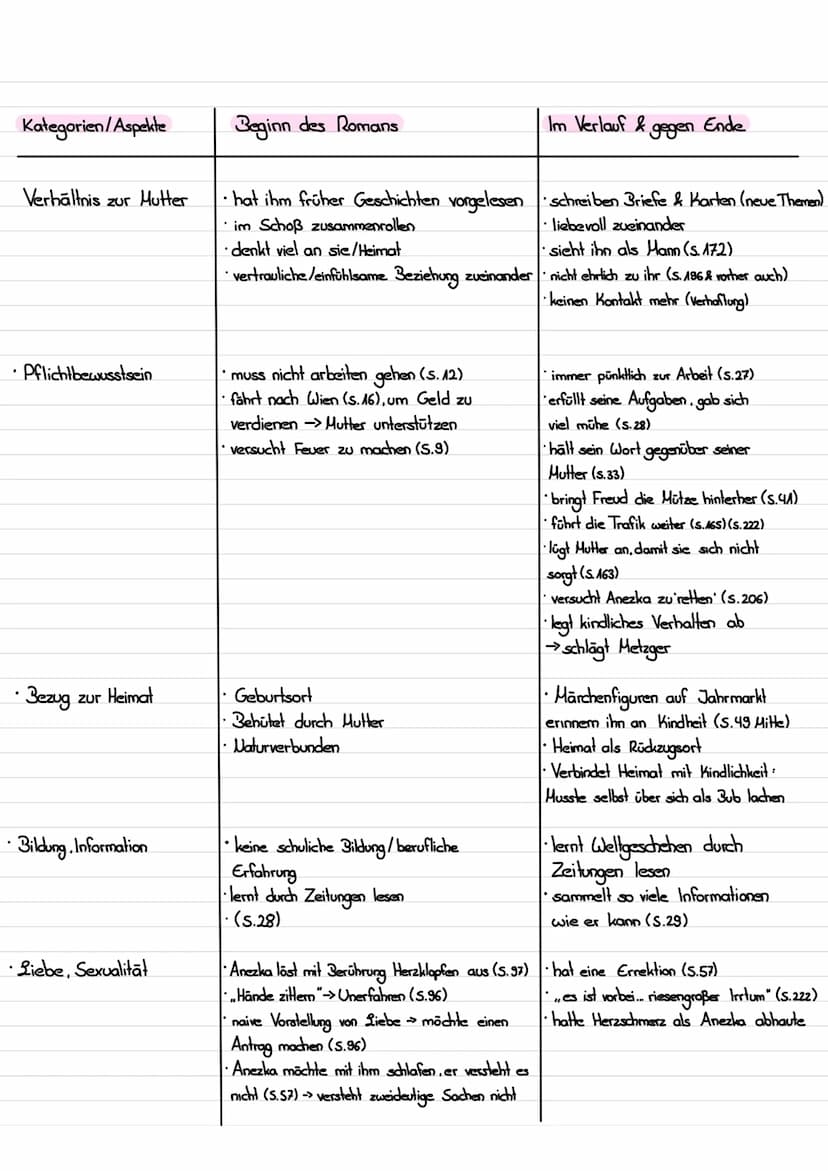 Kategorien/Aspekte
Beginn des Romans
Im Verlauf & gegen Ende
Verhältnis zur Mutter
· hat ihm früher Geschichten vorgelesen
· im Schoß zusammenrollen
· denkt viel an sie/Heimat
· vertrauliche/einfühlsame Beziehung zueinander
· schreiben Briefe & Karten (neue Themen)
· liebevoll zueinander
· sieht ihn als Mann (S.172)
· nicht ehrlich zu ihr (S.186 & vorher auch)
· keinen Kontakt mehr (Verhaftung)
· Pflichtbewusstsein
· muss nicht arbeiten gehen (S.12)
· fährt nach Wien (S.16), um Geld zu
verdienen → Mutter unterstützen
· versucht Feuer zu machen (S.9)
· immer pünktlich zur Arbeit (S.27)
· erfüllt seine Aufgaben, gab sich
viel mühe (S.28)
· hält sein Wort gegenüber seiner
Mutter (S.33)
· bringt Freud die Mütze hinterher (S.41)
· führt die Trafik weiter (S.165) (S.222)
· lügt Mutter an, damit sie sich nicht
sorgt (S.163)
· versucht Anezka zu 'retten' (S.206)
· legt kindliches Verhalten ab
→ schlägt Metzger
· Bezug zur Heimat
· Geburtsort
· Behütet durch Mutter
· Naturverbunden
· Märchenfiguren auf Jahrmarkt
erinnern ihn an Kindheit (S.49 Mitte)
· Heimat als Rückzugsort
· Verbindet Heimat mit Kindlichkeit:
Musste selbst über sich als Bub lachen
· Bildung, Information
· keine schuliche Bildung/berufliche
Erfahrung
· lernt durch Zeitungen lesen
· (S.28)
· lernt Weltgeschehen durch
Zeitungen lesen
· sammelt so viele Informationen
wie er kann (S.29)
· Liebe, Sexualität
· Anezka löst mit Berührung Herzklopfen aus (S.97)
· „Hände zittern" → Unerfahren (S.96)
· naive Vorstellung von Liebe → möchte einen
Antrag machen (S.96)
· Anezka möchte mit ihm schlafen, er versteht es
nicht (S.57) → versteht zweideutige Sachen nicht
· hat eine Errektion (S.57)
· „es ist vorbei... riesengroßer Irrtum" (S.222)
· hatte Herzschmerz als Anezka abhaute